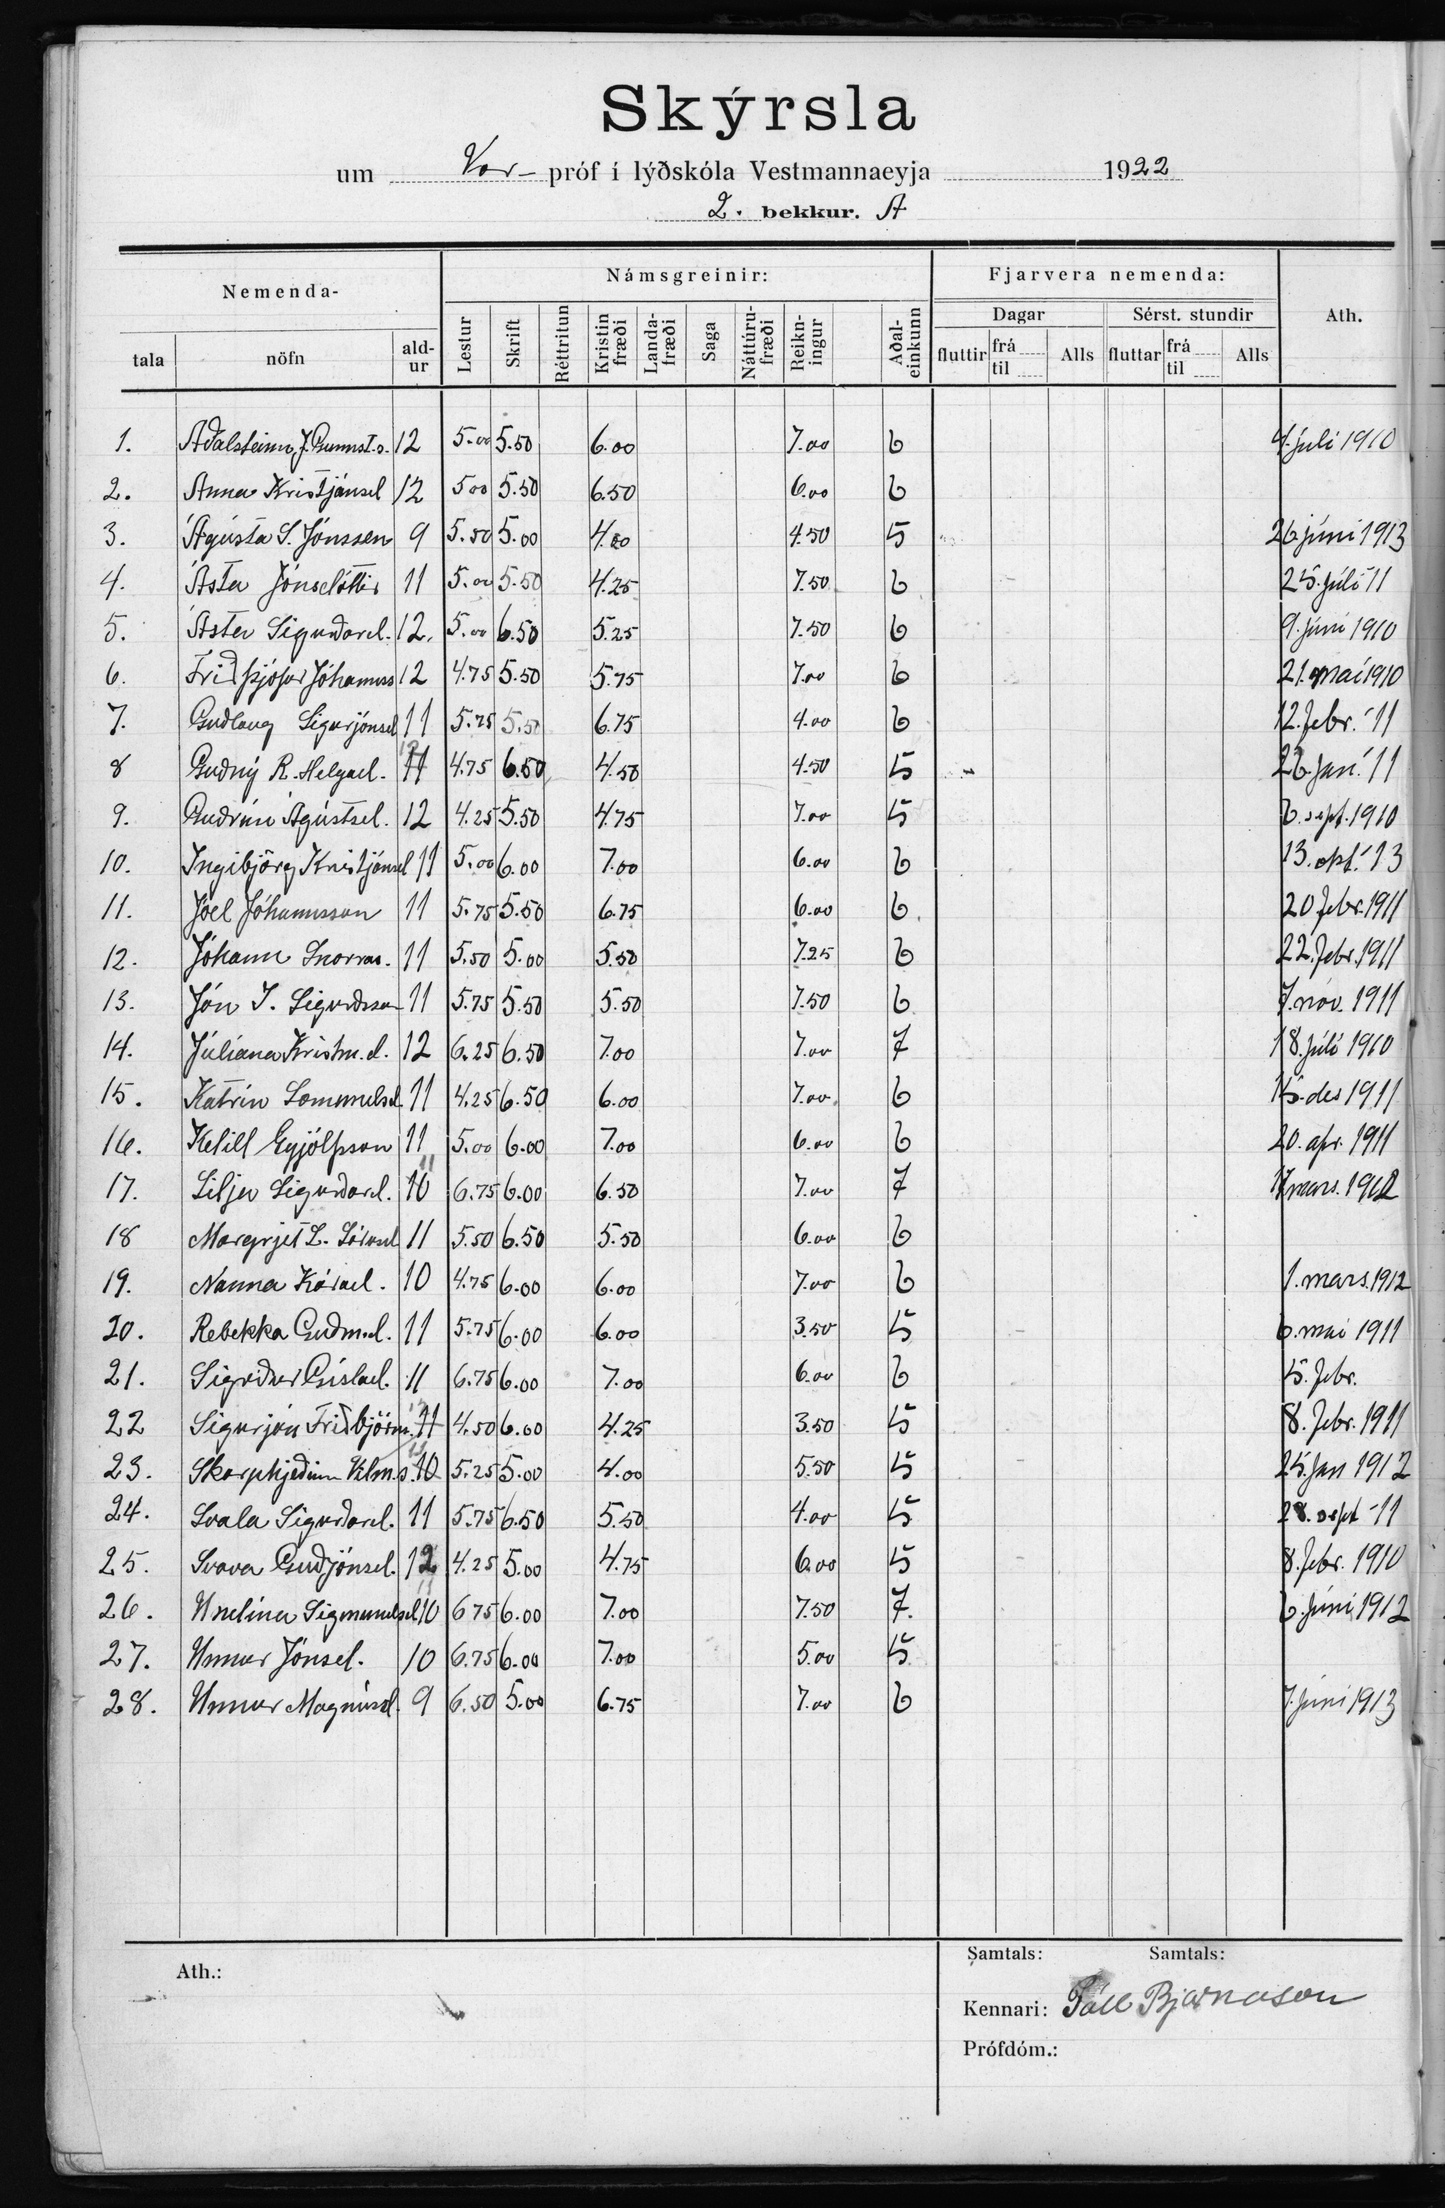 Skýrsla
um Vor- próf í lýðskóla Vestmannaeyja 1922
2. bekkur. A
Nemenda- Námsgreinir: Fjarvera nemenda: Ath.
tala nöfn ald-ur Lestur Skrift Réttritun Kristin fræði Landa-fræði Saga Náttúru-fræði Reikn-ingur Aðal-einkunn Dagar Sérst. stundir
fluttir frá til Alls fluttar frá til Alls
1. Aðalsteinn J. Gunnst.s. 12 5.00 5.50 6.00 7.00 6 4. júlí 1910
2. Anna Kristjánsd 12 5.00 5.50 6.50 6.00 6
3. Ágústa S. Jónssen 9 5.50 5.00 4.00 4.50 5 26 júní 1913
4. Ásta Jónsdóttir 11 5.00 5.50 4.25 7.50 6 25. júlí '11
5. Ásta Sigurðard. 12. 5.00 6.50 5.25 7.50 6 9. júní 1910
6. Friðþjófur Jóhannss 12 4.75 5.50 5.75 7.00 6 21. maí 1910
7. Guðlaug Sigurjónsd 11 5.75 5.50 6.75 4.00 6 12. febr. '11
8 Guðný R. Helgad. 11 4.75 6.50 4.50 4.50 5 26. jan. '11
9. Guðrún Ágústsd. 12 4.25 5.50 4.75 7.00 5 6. sept. 1910
10. Ingibjörg Kristjánsd 11 5.00 6.00 7.00 6.00 6 13. okt. '13
11. Jóel Jóhannsson 11 5.75 5.50 6.75 6.00 6 20 febr. 1911
12. Jóhann Snorras. 11 5.50 5.00 5.50 7.25 6 22. febr. 1911
13. Jón I. Sigurðsson 11 5.75 5.50 5.50 7.50 6 7. nóv. 1911
14. Júlíana Kristm.d. 12 6.25 6.50 7.00 7.00 7 18. júlí 1910
15. Katrín 11 4.25 6.50 6.00 7.00 6 15. des 1911
16. Ketill Eyjólfsson 11 5.00 6.00 7.00 6.00 6 20. apr. 1911
17. Lilja Sigurðard. 10 11 6.75 6.00 6.50 7.00 7 17 mars. 1912
18 Margrjet L. 11 5.50 6.50 5.50 6.00 6
19. Nanna Kárad. 10 4.75 6.00 6.00 7.00 6 1. mars. 1912
20. Rebekka Guðm.d. 11 5.75 6.00 6.00 3.50 5 6. maí 1911
21. Sigríður Gíslad. 11 6.75 6.00 7.00 6.00 6 5. febr.
22 Sigurjón Friðbjörns. 11 4.50 6.00 4.25 3.50 5 8. febr. 1911
23. Skarphjeðinn Vilm.s. 10 5.25 5.00 4.00 5.50 5 25. jan 1912
24. Svala Sigurðard. 11 5.75 6.50 5.50 4.00 5 28. sept '11
25. Svava Guðjónsd. 12 4.25 5.00 4.75 6.00 5 8. febr. 1910
26. Undína Sigmundsd 10 11 6 75 6.00 7.00 7.50 7. 6. júní 1912
27. Unnur Jónsd. 10 6.75 6.00 7.00 5.00 5
28. Unnur Magnúsd. 9 6.50 5.00 6.75 7.00 6 7. júní 1913
Ath.:
Samtals: Samtals:
Kennari: Páll Bjarnason
Prófdóm.: